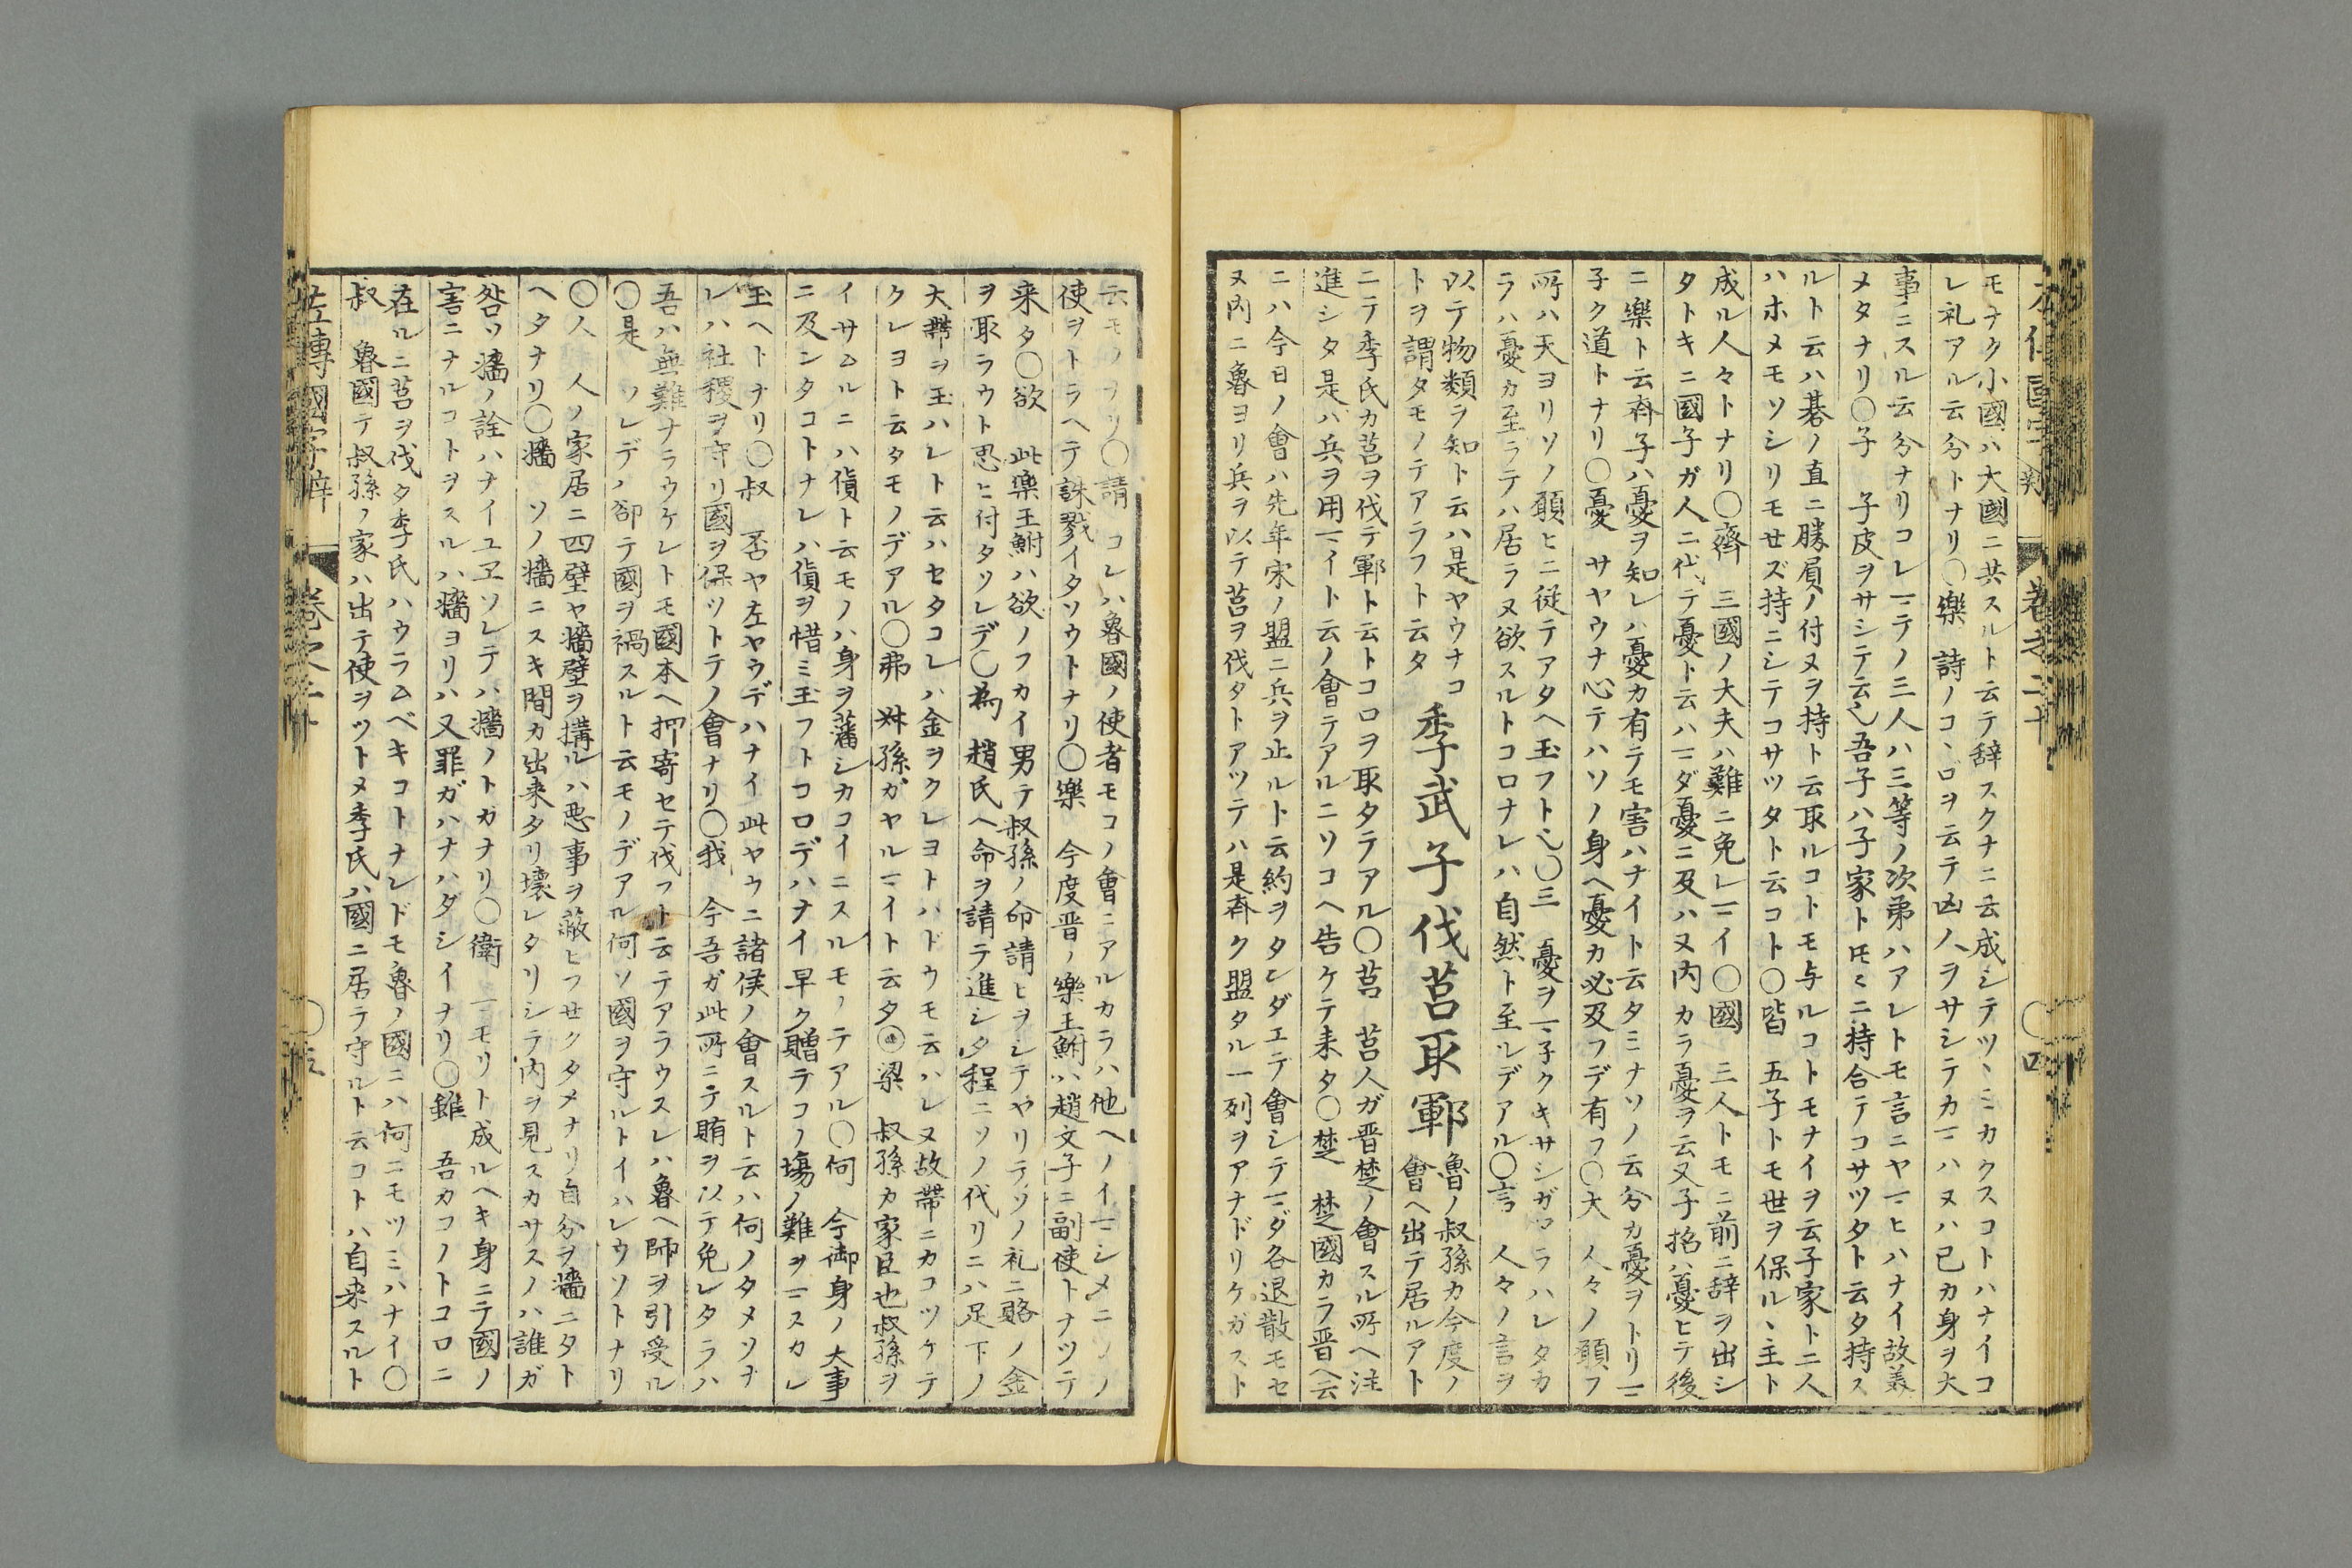 モナク小國ハ大國ニ共スルト云テ辞スクナニ云成シテツヽミカクスコトハナイコ
レ礼アル云分トナリ〇樂　詩ノコヽロヲ云テ凶人ヲサシテカマハヌハ已カ身ヲ大
事ニスル云分ナリコレマテノ三人ハ三等ノ次第ハアレトモ言ニヤマヒハナイ故義
メタナリ〇子　子皮ヲサシテ云也吾子ハ子家トモミニ持合テコサツタト云タ持ス
ルト云ハ碁ノ直ニ勝負ノ付ヌヲ持ト云取ルコトモ与ルコトモナイヲ云子家ト二人
ハホメモソシリモセズ持ニシテコサツタト云コト〇皆　五子トモ世ヲ保ルヽ主ト
成ル人々トナリ〇齊　三國ノ大夫ハ難ニ免レマイ〇國　三人トモニ前ニ辞ヲ出シ
タトキニ國子ガ人ニ代テ憂ト云ハマダ憂ニ及ハヌ内カラ憂ヲ云又子招ハ憂ヒテ後
ニ樂ト云斉子ハ憂ヲ知レハ憂カ有テモ害ハナイト云タミナソノ云分カ憂ヲトリマ
子ク道トナリ〇憂　サヤウナ心テハソノ身ヘ憂カ必及フデ有フ〇大　人々ノ願フ
所ハ天ヨリソノ願ヒニ従テアタヘ玉フト也〇三　憂ヲマ子クキサシガアラハレタカ
ラハ憂カ至ラテハ居ラヌ欲スルトコロナレハ自然ト至ルデアル〇言　人々ノ言ヲ
以テ物類ヲ知ト云ハ是ヤウナコ
トヲ謂タモノテアラフト云タ
季武子伐莒取鄆
魯ノ叔孫カ今度ノ
會ヘ出テ居ルアト
ニテ季氏カ莒ヲ伐テ鄆ト云トコロヲ取タテアル〇莒　莒人ガ晋楚ノ會スル所ヘ注
進シタ是ハ兵ヲ用マイト云ノ會テアルニソコヘ告ケテ来タ〇楚　楚國カラ晋ヘ云
ニハ今日ノ會ハ先年宋ノ盟ニ兵ヲ止ルト云約ヲタレダエテ會シテマダ各退散モセ
ヌ内ニ魯ヨリ兵ヲ以テ莒ヲ伐タトアツテハ是斉ク盟タル一列ヲアナドリケガスト
云モノナリ〇請　コレハ魯國ノ使者モコノ會ニアルカラハ他ヘノイマシメニソノ
使ヲトラヘテ誅戮イタソウトナリ〇樂　今度晋ノ樂王鮒ハ趙文子ニ副使トナツテ
来タ〇欲　此樂王鮒ハ欲ノフカイ男テ叔孫ノ命請ヒヲシテヤリテソノ礼ニ賂ノ金
ヲ取ラウト思ヒ付タソレデ〇為　趙氏ヘ命ヲ請テ進シタ程ニソノ代リニハ足下ノ
大帶ヲ玉ハレト云ハセタコレハ金ヲクレヨトハドウモ云ハレヌ故帶ニカコツケテ
クレヨト云タモノデアル〇弗　叔孫ガヤルマイト云タ〇梁　叔孫カ家臣也叔孫ヲ
イサムルニハ貨ト云モノハ身ヲ藩シカコイニスルモノテアル〇何　今御身ノ大事
ニ及ンタコトナレハ貨ヲ惜ミ玉フトコロデハナイ早ク贈テコノ塲ノ難ヲマスカレ
玉ヘトナリ〇叔　否ヤ左ヤウデハナイ此ヤウニ諸侯ノ會スルト云ハ何ノタメソナ
レハ社稷ヲ守リ國ヲ保ツトテノ會ナリ〇我　今吾ガ此所ニテ賄ヲ以テ免レタラハ
吾ハ無難ナラウケレトモ國本ヘ押寄セテ伐フト云テアラウスレハ魯ヘ師ヲ引受ル
〇是　ソレデノ卻テ國ヲ禍スルト云モノデアル何ソ國ヲ守ルトイハレウソトナリ
〇人　人ノ家居ニ四壁ヤ墻壁ヲ搆ルハ悪事ヲ蔽ヒフセクタメナリ自分ヲ墻ニタト
ヘタナリ〇墻　ソノ墻ニスキ間カ出来タリ壊レタリシテ内ヲ見スカサスノハ誰ガ
咎ソ墻ノ詮ハナイユヱソレテハ墻ノトカナリ〇衛　マモリト成ルヘキ身ニテ國ノ
害ニナルコトヲスルハ墻ヨリハ又罪ガハナハダシイナリ〇雖　吾カコノトコロニ
在ルニ莒ヲ伐タ季氏ハウラムベキコトナレドモ魯ノ國ニハ何ニモツミハナイ〇
叔　魯國テ叔孫ノ家ハ出テ使ヲツトメ季氏ハ國ニ居テ守ルト云コトハ自来スルト
左傳國字辯　巻之二十